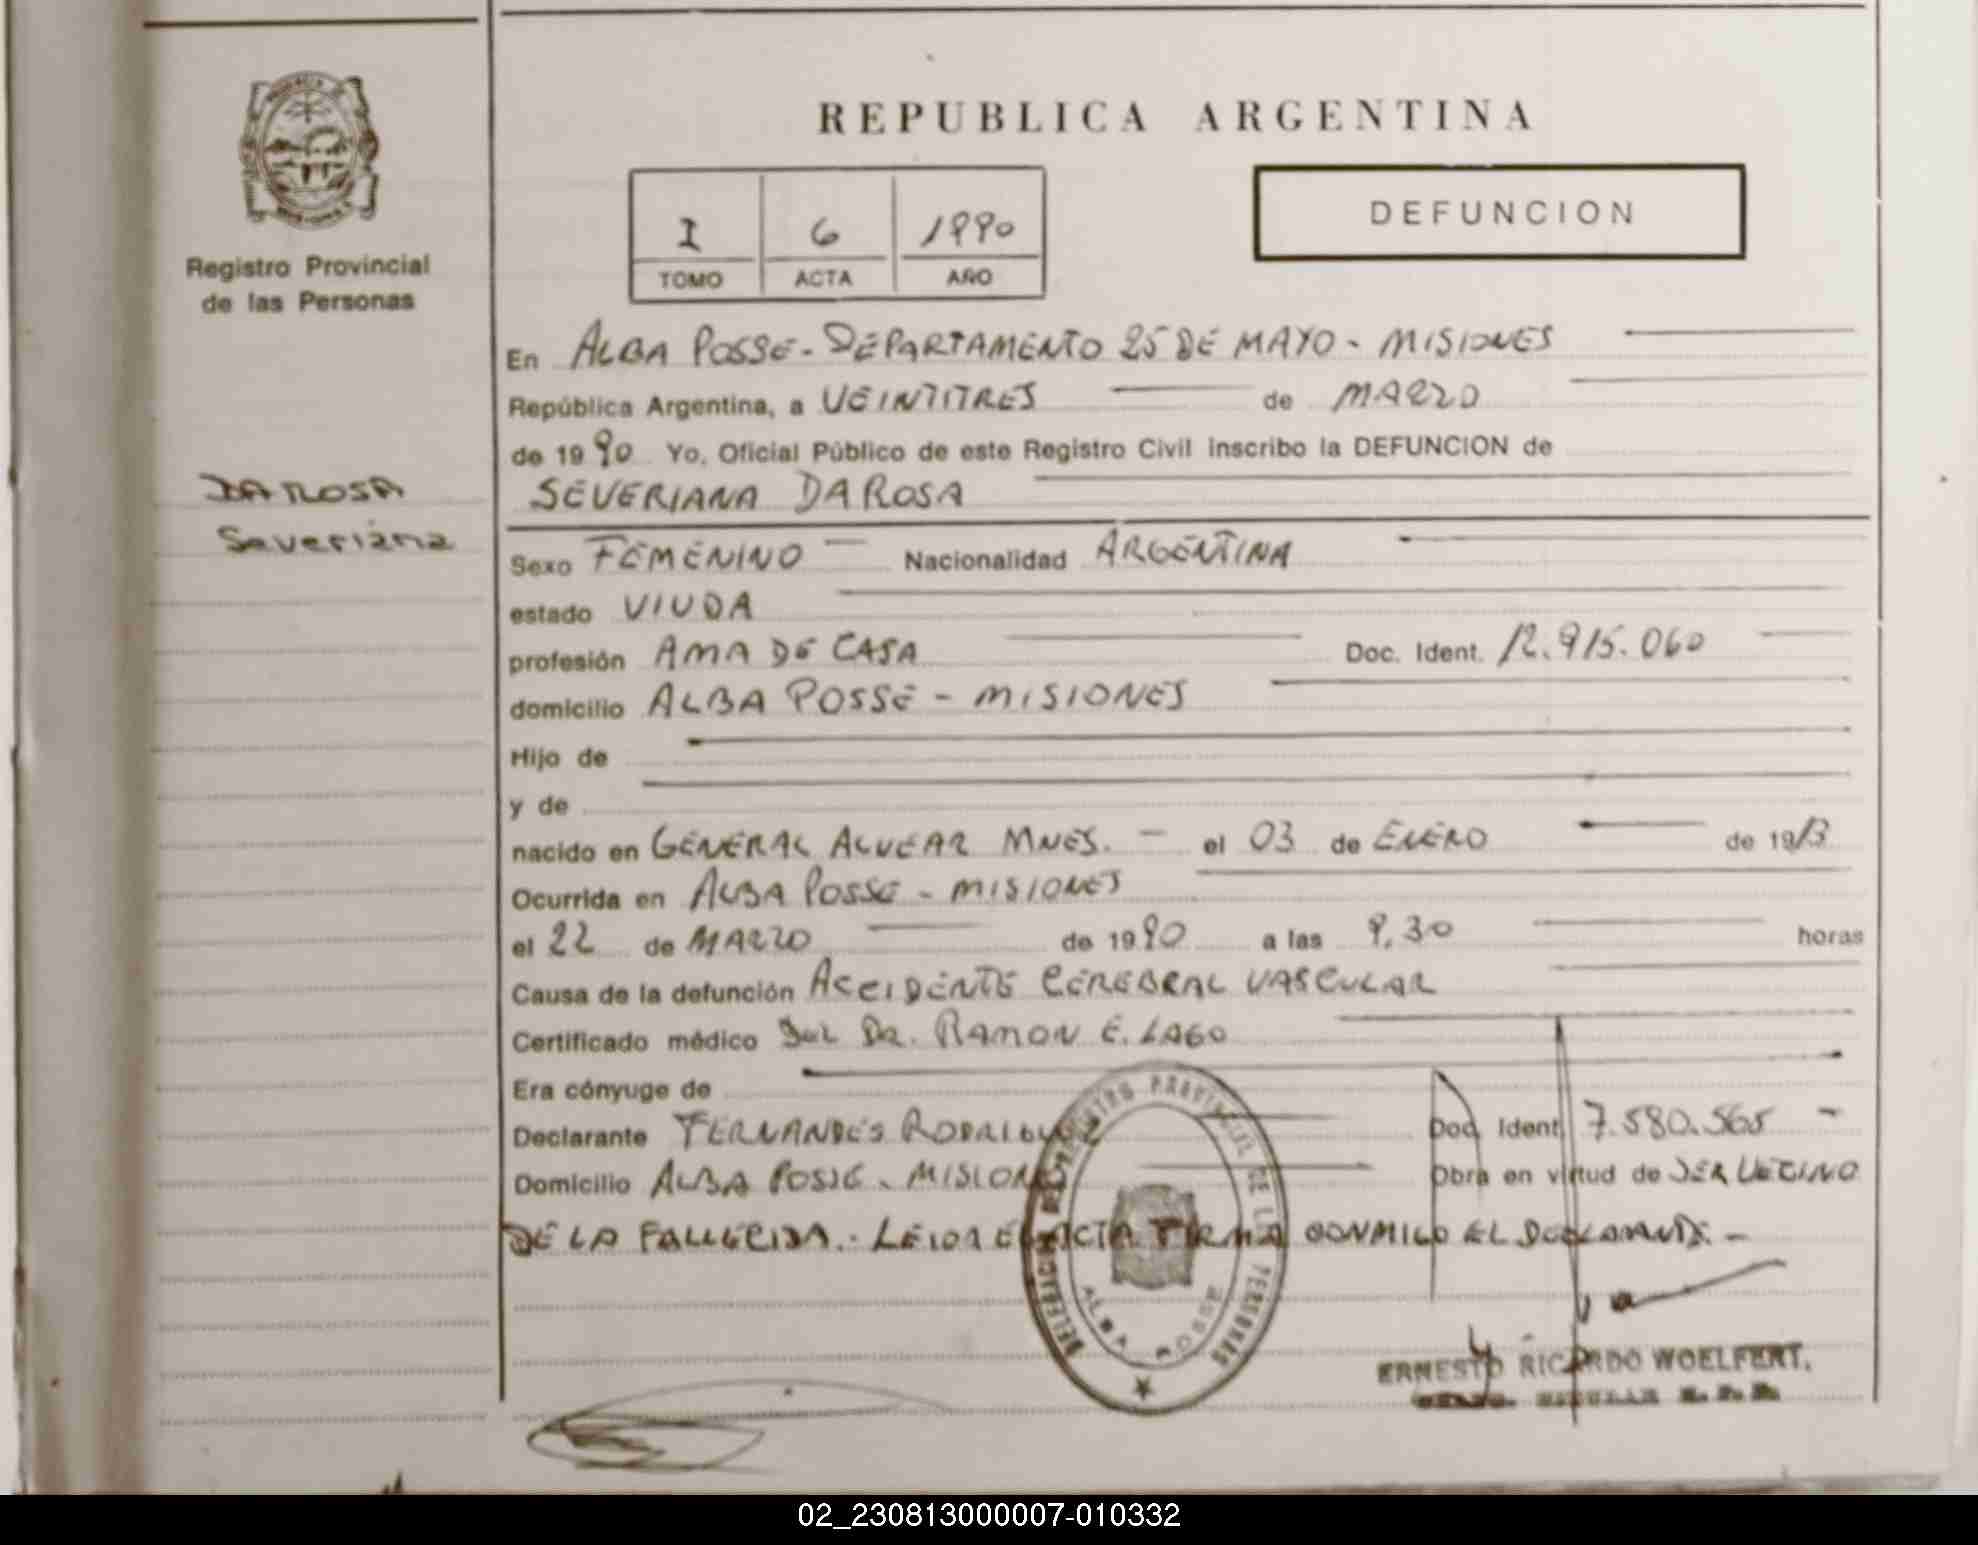 REPUBLICA ARGENTINA
Registro Provincial
de las Personas
I 6 1990
TOMO ACTA AÑO
DEFUNCION
DA ROSA
Severiana
En ALBA POSSE - DEPARTAMENTO 25 DE MAYO - MISIONES
República Argentina, a VEINTITRES de MARZO
de 1990 Yo, Oficial Público de este Registro Civil inscribo la DEFUNCION de
SEVERIANA DA ROSA
Sexo FEMENINO Nacionalidad ARGENTINA
estado VIUDA
profesión AMA DE CASA Doc. Ident. 12.915.060
domicilio ALBA POSSE - MISIONES
Hijo de
y de
nacido en GENERAL ALVEAR MNES. - el 03 de ENERO de 1913
Ocurrida en ALBA POSSE - MISIONES
el 22 de MARZO de 1990 a las 9,30 horas
Causa de la defunción ACCIDENTE CEREBRAL VASCULAR
Certificado médico DEL DR. RAMON E. LAGO
Era cónyuge de
Declarante FERNANDES RODRIGUEZ Doc. Ident. 7.580.565 -
Domicilio ALBA POSSE - MISIONES Obra en virtud de SER VECINO
DE LA FALLECIDA.- LEIDA EL ACTA FIRMA CONMIGO EL DECLARANTE. -
DELEGACION REGISTRO PROVINCIAL DE LAS PERSONAS
ALBA POSSE
ERNESTO RICARDO WOELFERT.
02_230813000007-010332